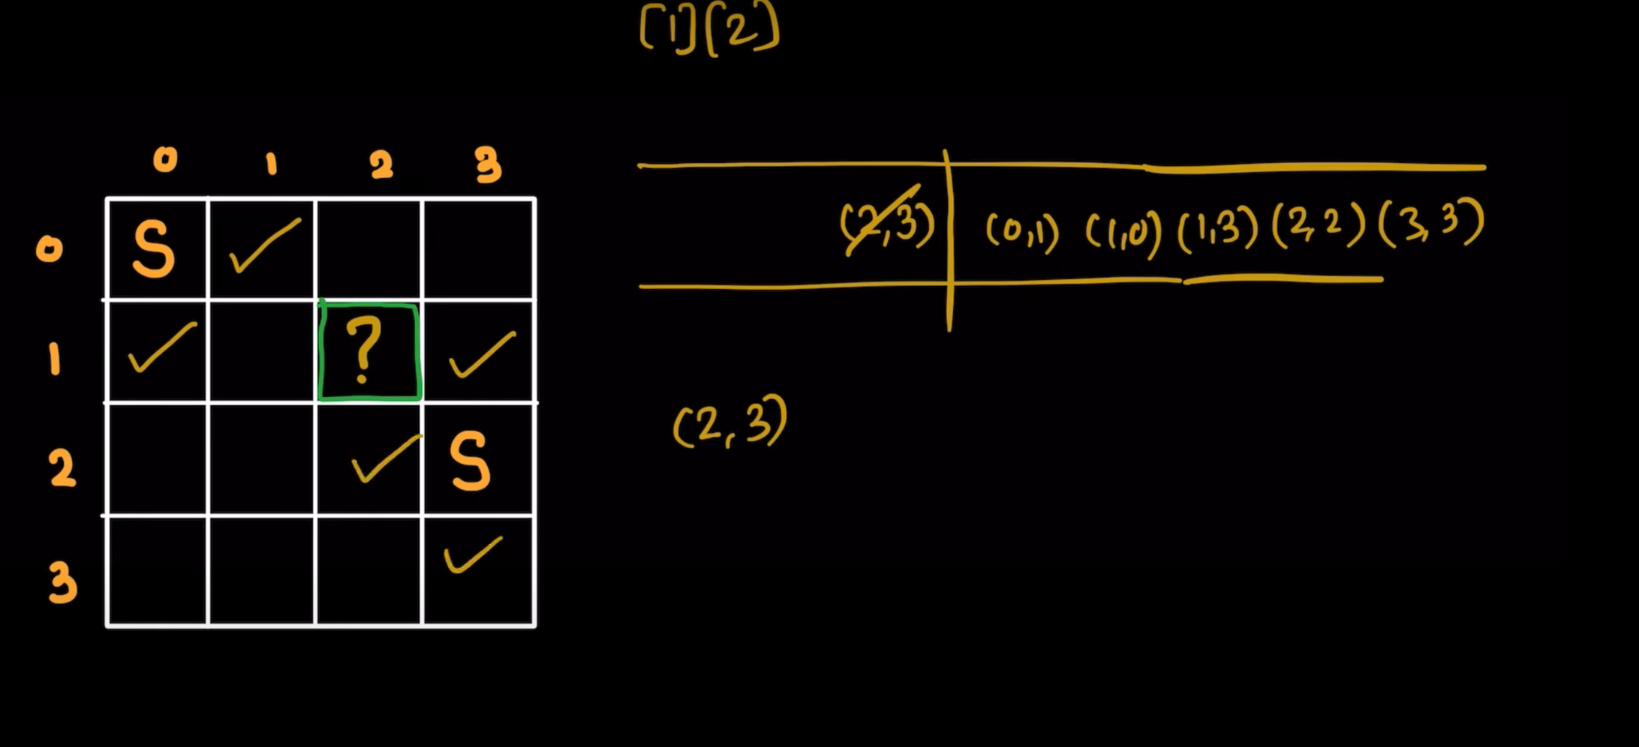 [1][2]
0 1 2 3
0 S ✓
1 ✓ ? ✓
2 ✓ S
3 ✓
(2,3) (0,1) (1,0) (1,3) (2,2) (3,3)
(2,3)